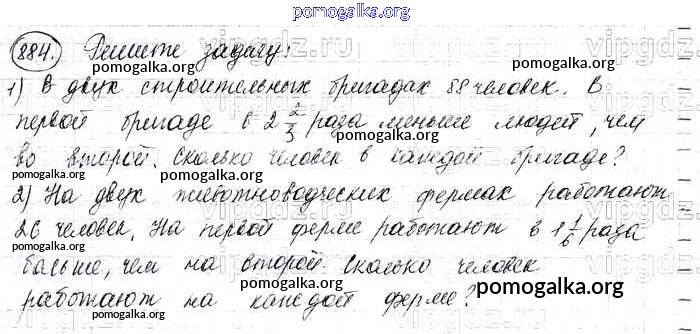 pomogalka.org
884. Решите задачу:
pomogalka.org
1) В двух строительных бригадах 88 человек. В
pomogalka.org
первой бригаде в 2 2/3 раза меньше людей, чем
pomogalka.org
во второй. Сколько человек в каждой бригаде?
pomogalka.org
2) На двух животноводческих фермах работают
pomogalka.org
26 человек. На первой ферме работают в 1 1/6 раза
pomogalka.org
больше, чем на второй. Сколько человек
работают на каждой ферме?
pomogalka.org
pomogalka.org
vipgdz.ru